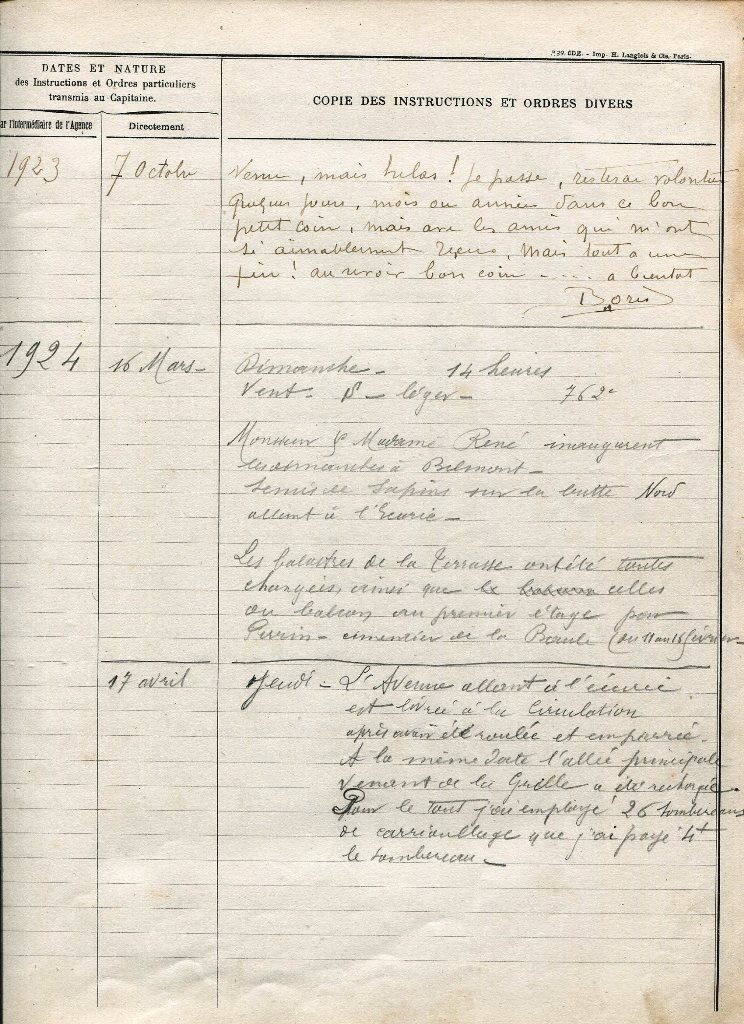 P 99. CDE. - Imp. H. Langlois & Cie, Paris.
DATES ET NATURE
des Instructions et Ordres particuliers
transmis au Capitaine.
COPIE DES INSTRUCTIONS ET ORDRES DIVERS
ar l'Intermédiaire de l'Agence
Directement
1923
7 Octobre
Venu, mais hélas! je passe, resterai volontier
quelques jours, mois ou années dans ce bon
petit coin, mais avec les amis qui m'ont
si aimablement reçus, mais tout a une
fin! au revoir bon coin ..... a bientot
Boris
1924
16 Mars -
Dimanche - 14 heures
Vent - S - léger - 762
Monsieur & Madame René inaugurent
les à Belmont -
Semis de Sapins sur la butte Nord
allant à l'Ecurie -
Les balustres de la Terrasse ont été toutes
changées, ainsi que celles
du balcon au premier étage par
Perrin - cimentier de la Baule (du 11 au 16 février -
17 avril
Jeudi - L'Avenue allant à l'écurie
est livrée à la Circulation
après avoir été roulée et empierré.
A la même date l'allée principale
venant de la Grille a été rechargée.
Pour le tout j'ai employé 26 tombereaux
de que j'ai payé 4f
le tombereau -